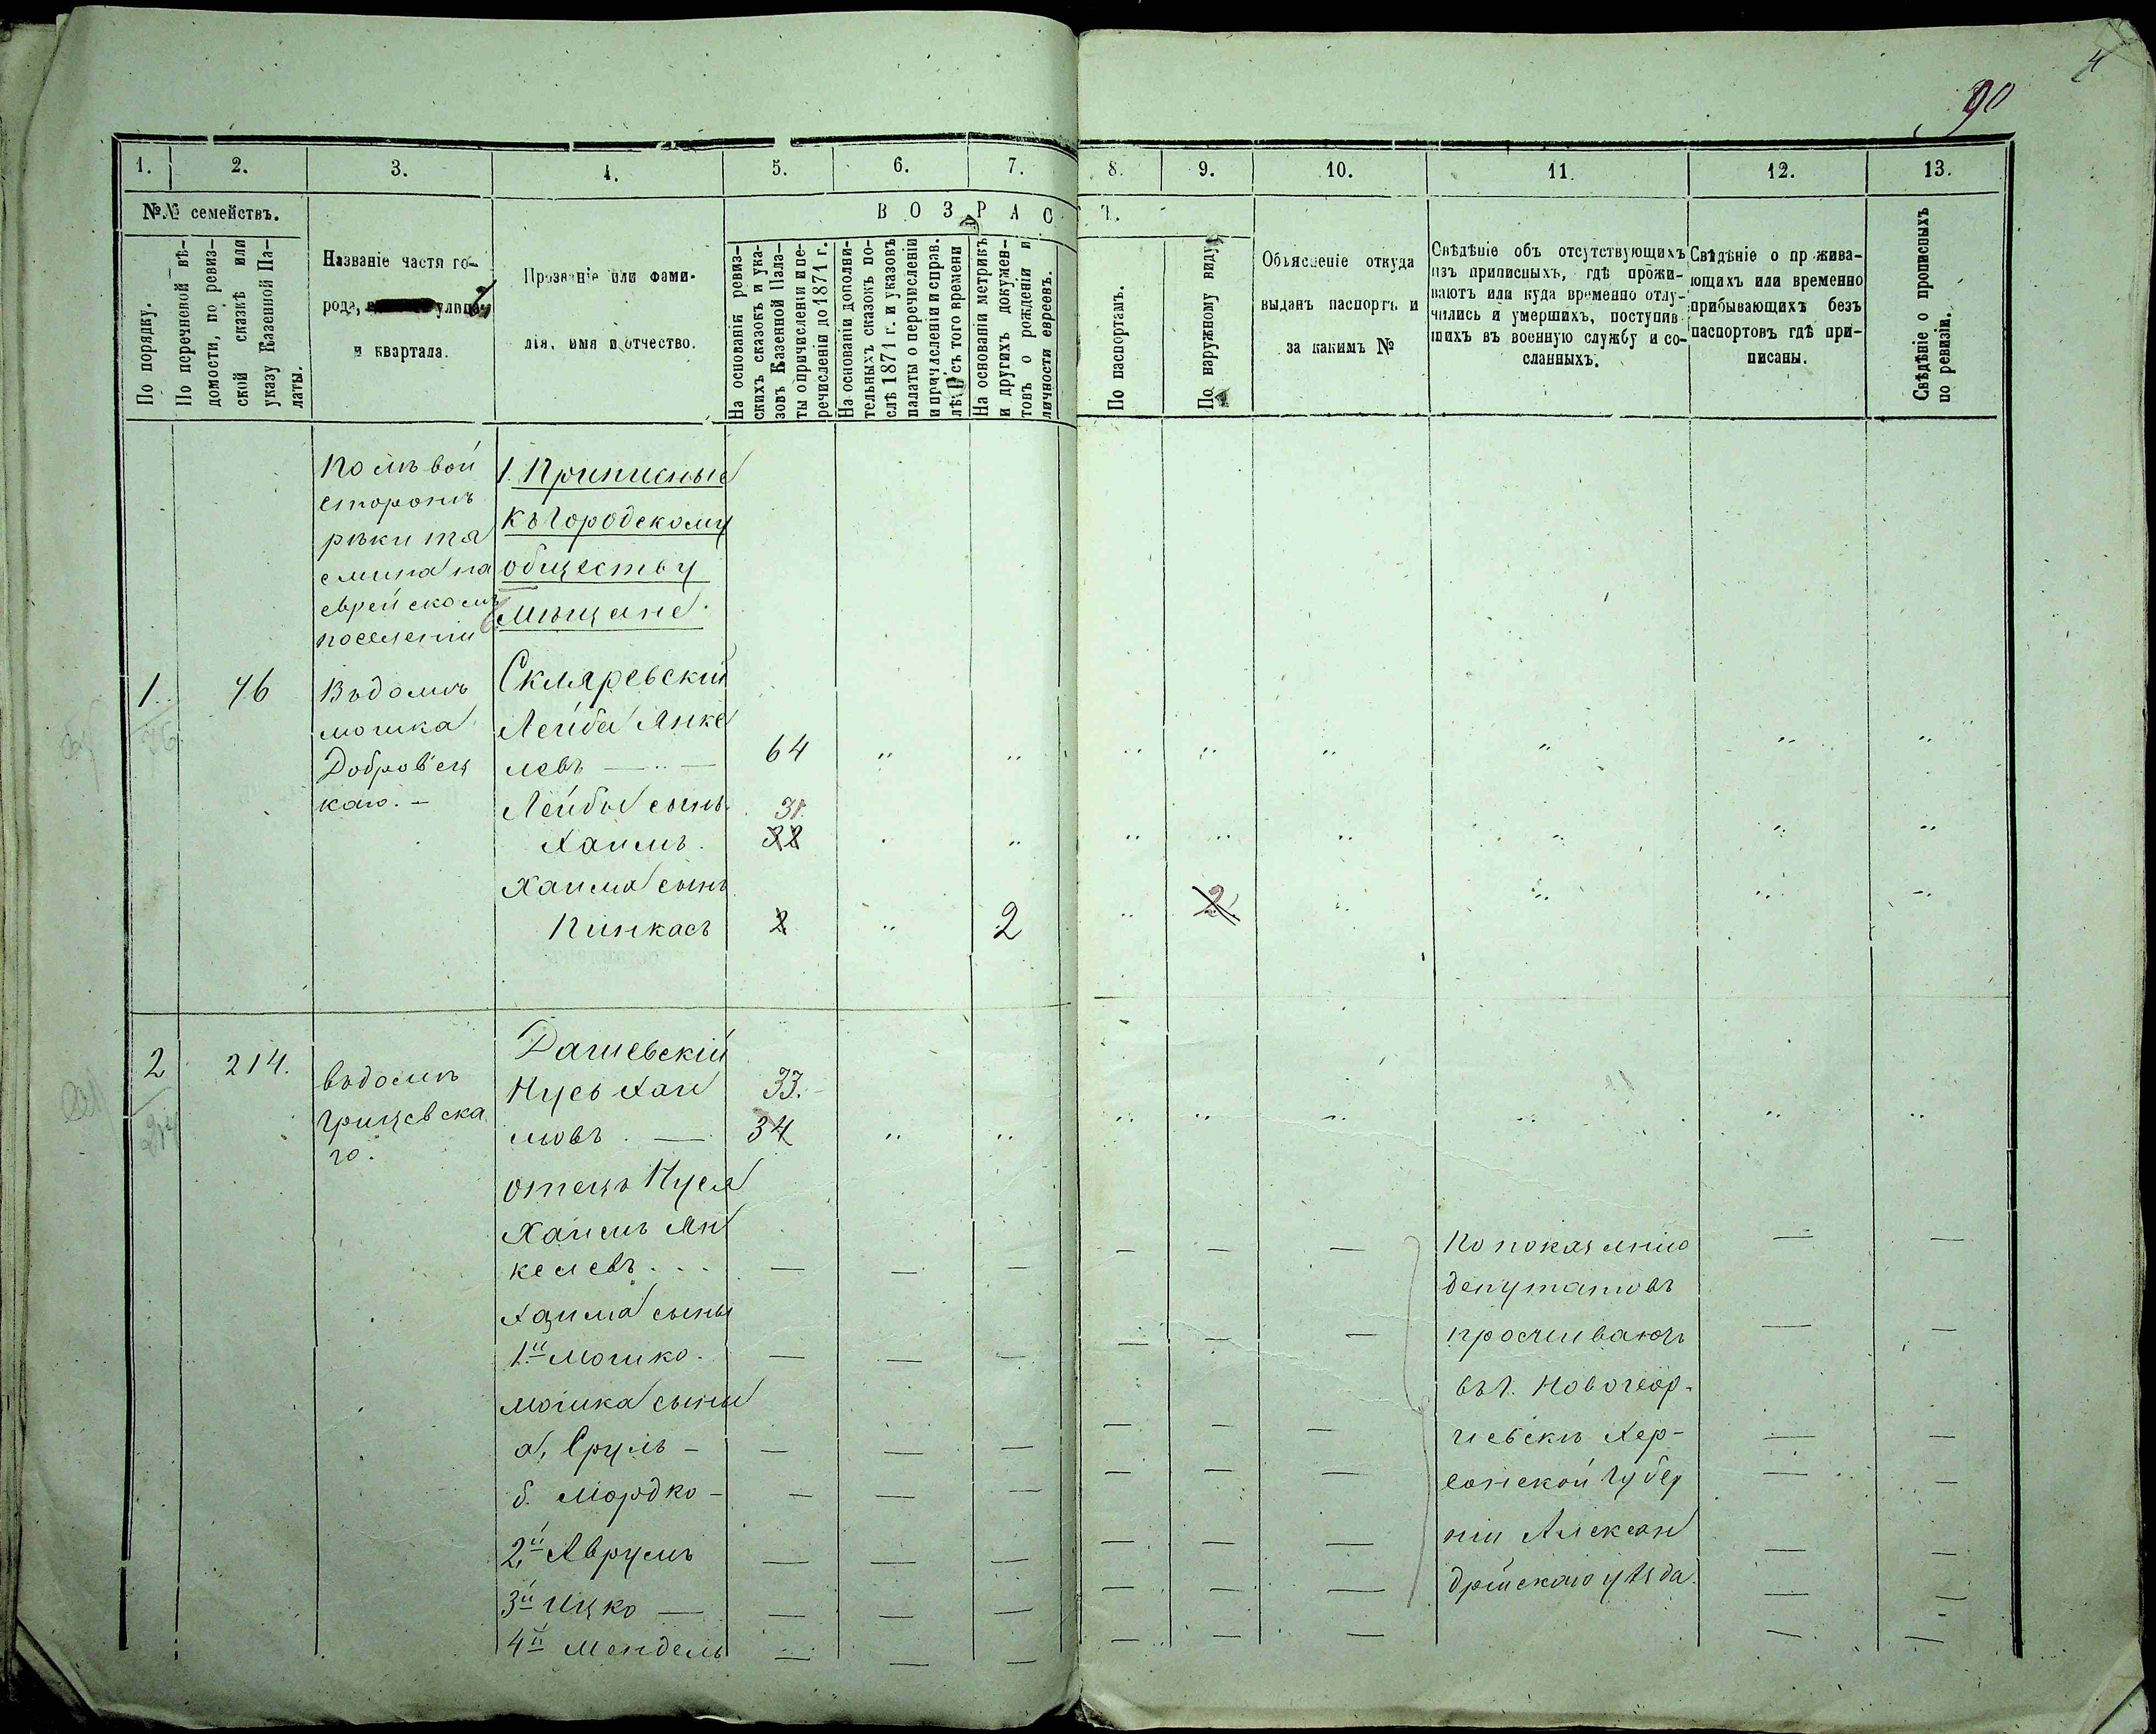 4
90
1. 2. 3. 4. 5. 6. 7. 8. 9. 10. 11. 12. 13.
№№ семействъ.
По порядку.
По перечневой вѣ-
домости, по ревиз-
ской сказкѣ или
указу Казенной Па-
латы.
Названіе частя го-
рода, улицы
и квартала.
Прозваніе или фами-
лія, имя и отчество.
ВОЗРАСТ.
На основаніи ревиз-
скихъ сказокъ и ука-
зовъ Казенной Пала-
ты о причисленіи и пе-
речисленіи до 1871 г.
На основаніи дополни-
тельныхъ сказокъ по-
слѣ 1871 г. и указовъ
палаты о перечисленіи
и причисленіи и справ.
лѣтъ съ того времени
На основаніи метрикъ
и другихъ докумен-
товъ о рожденіи и
личности евреевъ.
По паспортамъ.
По наружному виду
Объясненіе откуда
выданъ паспортъ и
за какимъ №
Свѣдѣніе объ отсутствующихъ
изъ приписныхъ, гдѣ прожи-
ваютъ или куда временно отлу-
чились и умершихъ, поступив-
шихъ въ военную службу и со-
сланныхъ.
Свѣдѣніе о прожива-
ющихъ или временно
прибывающихъ безъ
паспортовъ гдѣ при-
писаны.
Свѣдѣніе о прописныхъ
по ревизіи.
По лѣвой
сторонѣ
рѣки Тя
смина на
еврейскомъ
поселеніи
1. Приписные
къ городскому
обществу
Мѣщане.
1. 76 Въ домѣ
Мошка
Добровец
каго. –
76
Скляревскій
Лейба Янке
левъ — 64
Лейбы сынъ 31.
Хаимъ. 32
Хаима сынъ
Пинкасъ 2 2 2.
2 214. въ домѣ
Грицевска
го.
214
Дашевскій
Нусь Хаи 33. –
мовъ. — 34
отецъ Нуся
Хаимъ Ян
келевъ . . .
Хаима сыны
1й Мошко.
Мошка сыны
а, Сруль –
б. Мордко –
2й Аврумъ
3й Ицко —
4й Мендель
По показанію
депутатовъ
проживаютъ
въ г. Новогеор-
гіевскѣ Хер-
сонской губер
ніи Алексан
дрійскаго уѣзда.